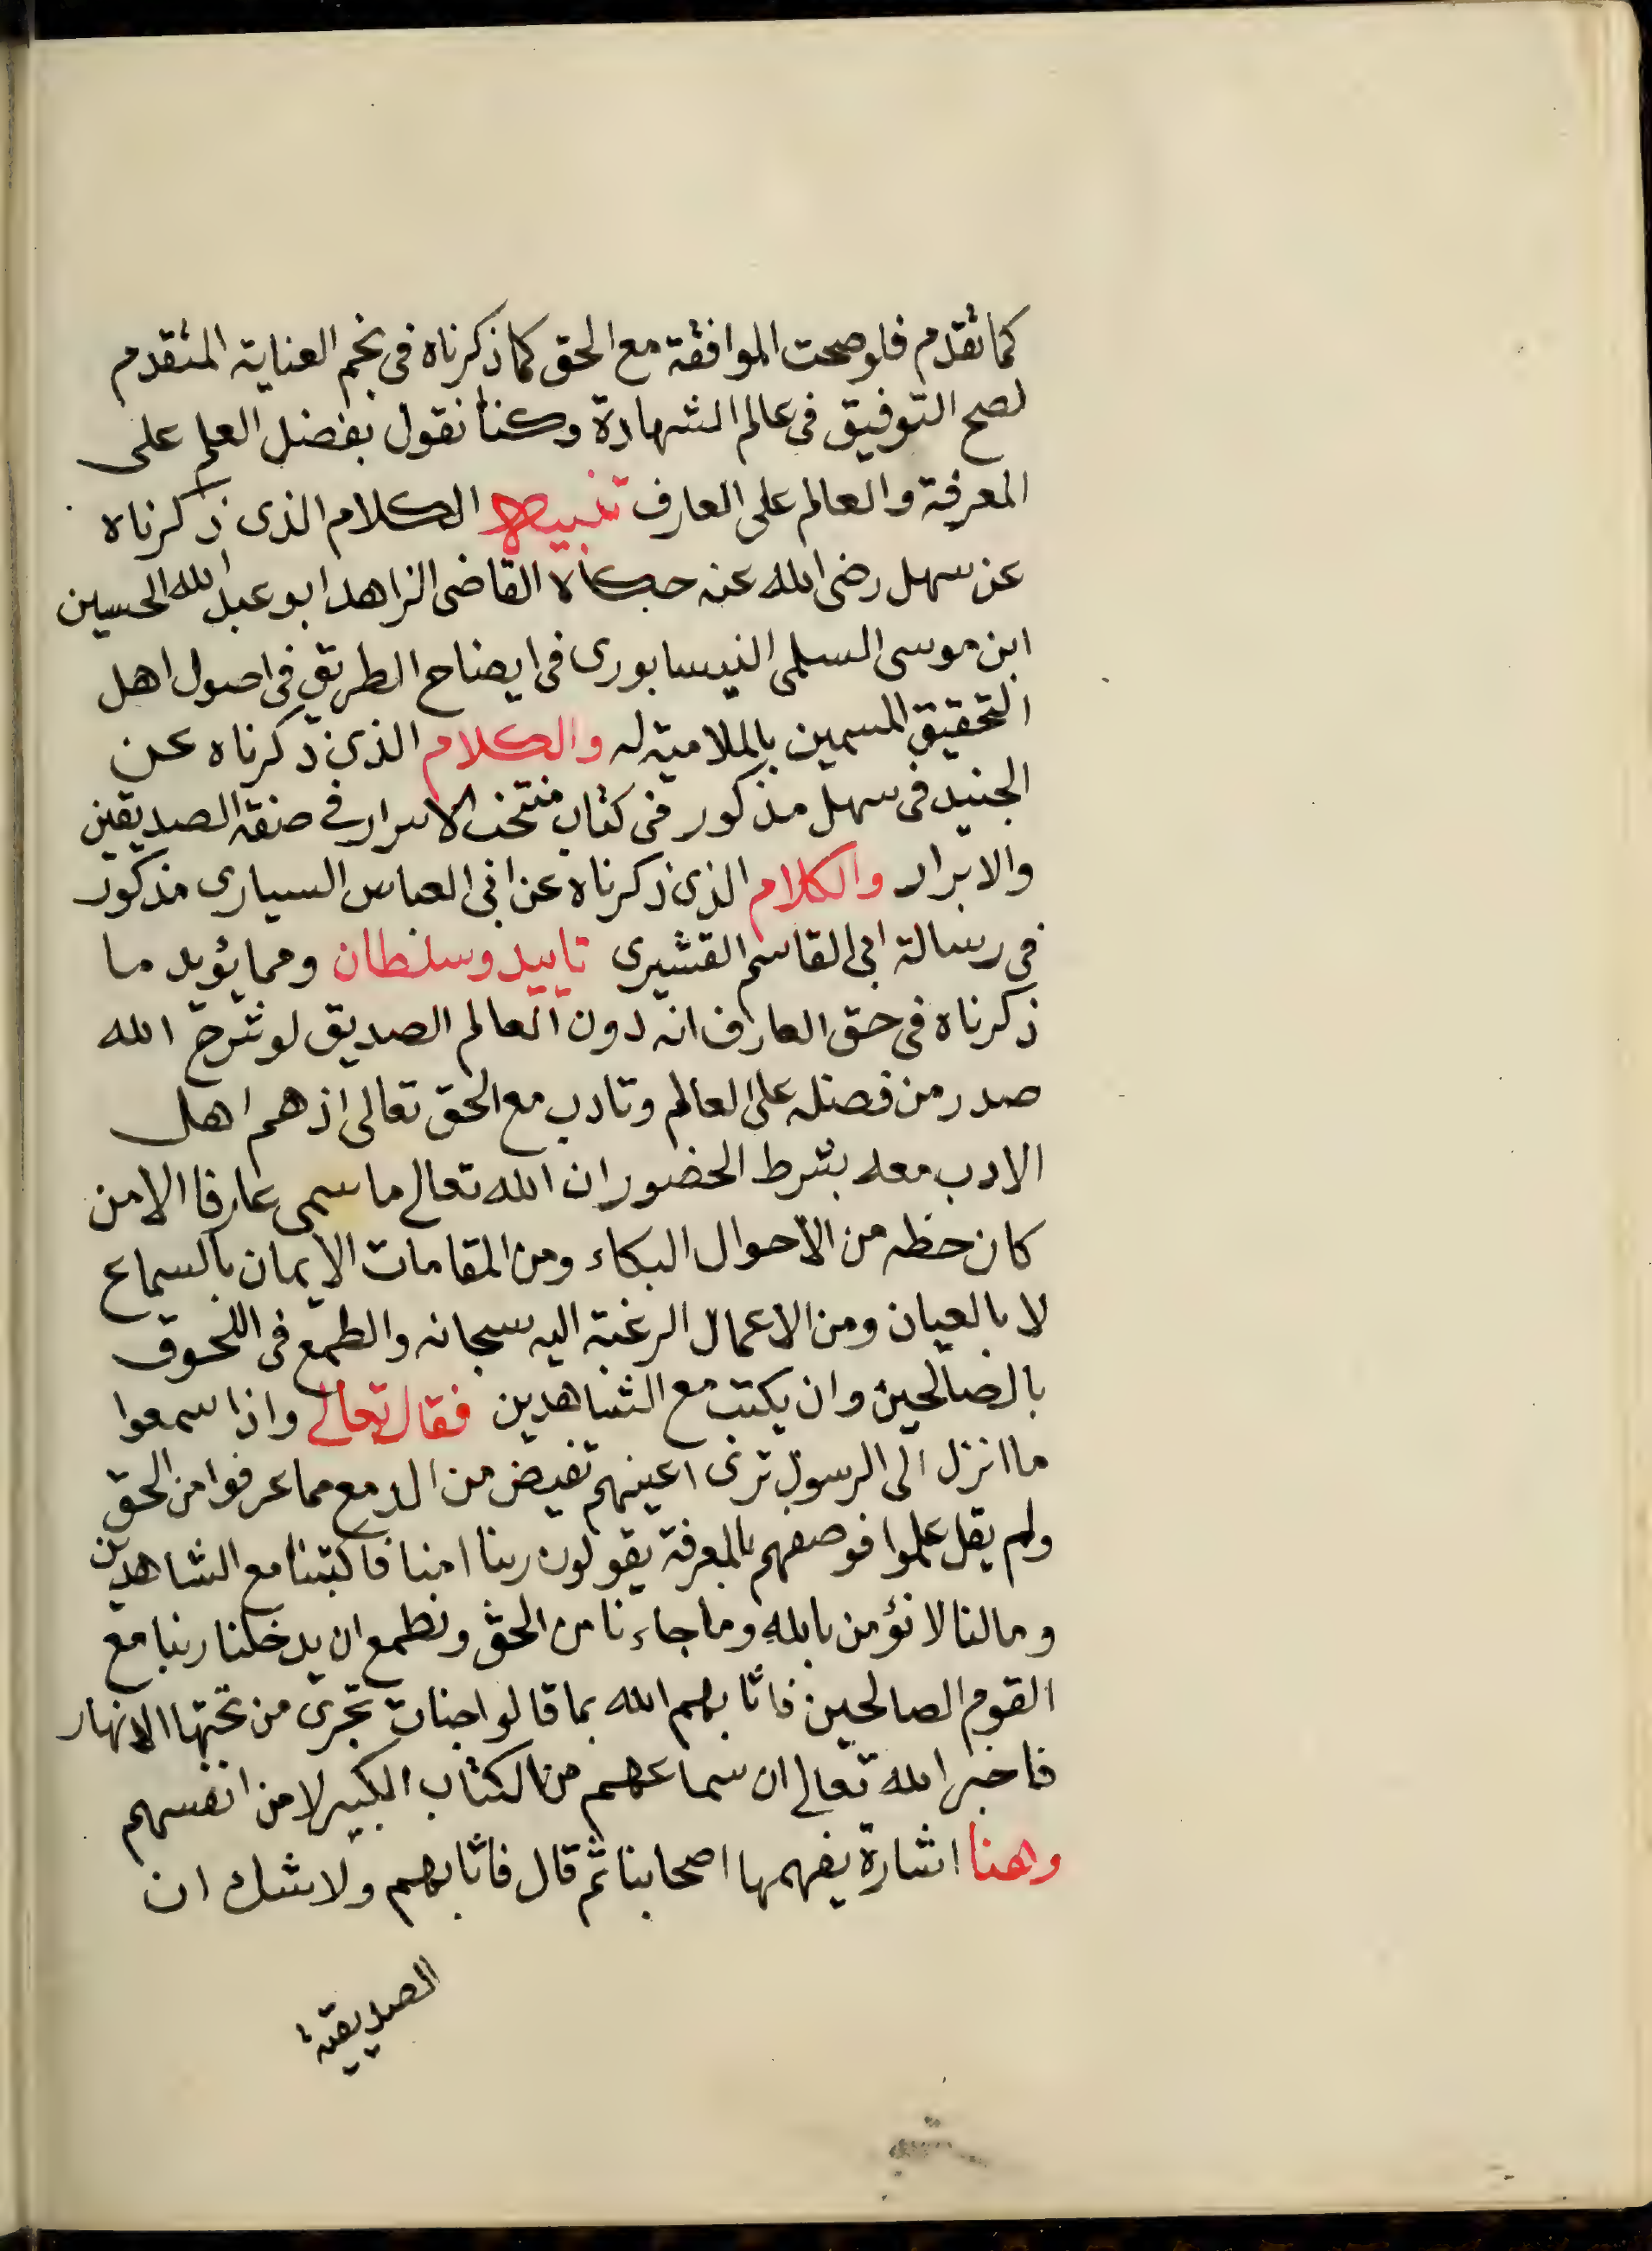 كما تقدم فلو صحت الموافقة مع الحق كما ذكرناه فى نجم العناية المتقدم
لصح التوفيق فى عالم الشهادة وكنا نقول بفضل العلم على
المعرفة والعالم على العارف تنبيه الكلام الذى ذكرناه
عن سهل رضى الله عنه حكاه القاضى الزاهد ابو عبد الله الحسين
ابن موسى السلمى النيسابورى فى ايضاح الطريق فى اصول اهل
التحقيق المسمين بالملامية له والكلام الذى ذكرناه عن
الجنيد فى سهل مذكور فى كتاب منتخب الاسرار فى صفة الصديقين
والابرار والكلام الذى ذكرناه عن ابى العباس السيارى مذكور
فى رسالة ابى القاسم القشيرى تاييد وسلطان ومما يؤيد ما
ذكرناه فى حق العارف انه دون العالم الصديق لو شرح الله
صدر من فضله على العالم وتادب مع الحق تعالى اذ هم اهل
الادب معه بشرط الحضور ان الله تعالى ما سمى عارفا الا من
كان حظه من الاحوال البكاء ومن المقامات الايمان بالسماع
لا بالعيان ومن الاعمال الرغبة اليه سبحانه والطمع فى اللحوق
بالصالحين وان يكتب مع الشاهدين فقال تعالى واذا سمعوا
ما انزل الى الرسول ترى اعينهم تفيض من الدمع مما عرفوا من الحق
ولم يقل علموا فوصفهم بالمعرفة يقولون ربنا امنا فاكتبنا مع الشاهدين
وما لنا لا نؤمن بالله وما جاءنا من الحق ونطمع ان يدخلنا ربنا مع
القوم الصالحين فاثابهم الله بما قالوا جنات تجرى من تحتها الانهار
فاخبر الله تعالى ان سماعهم من الكتاب الكبير لا من انفسهم
وهنا اشارة يفهمها اصحابنا ثم قال فاثابهم ولا شك ان
الصديقية